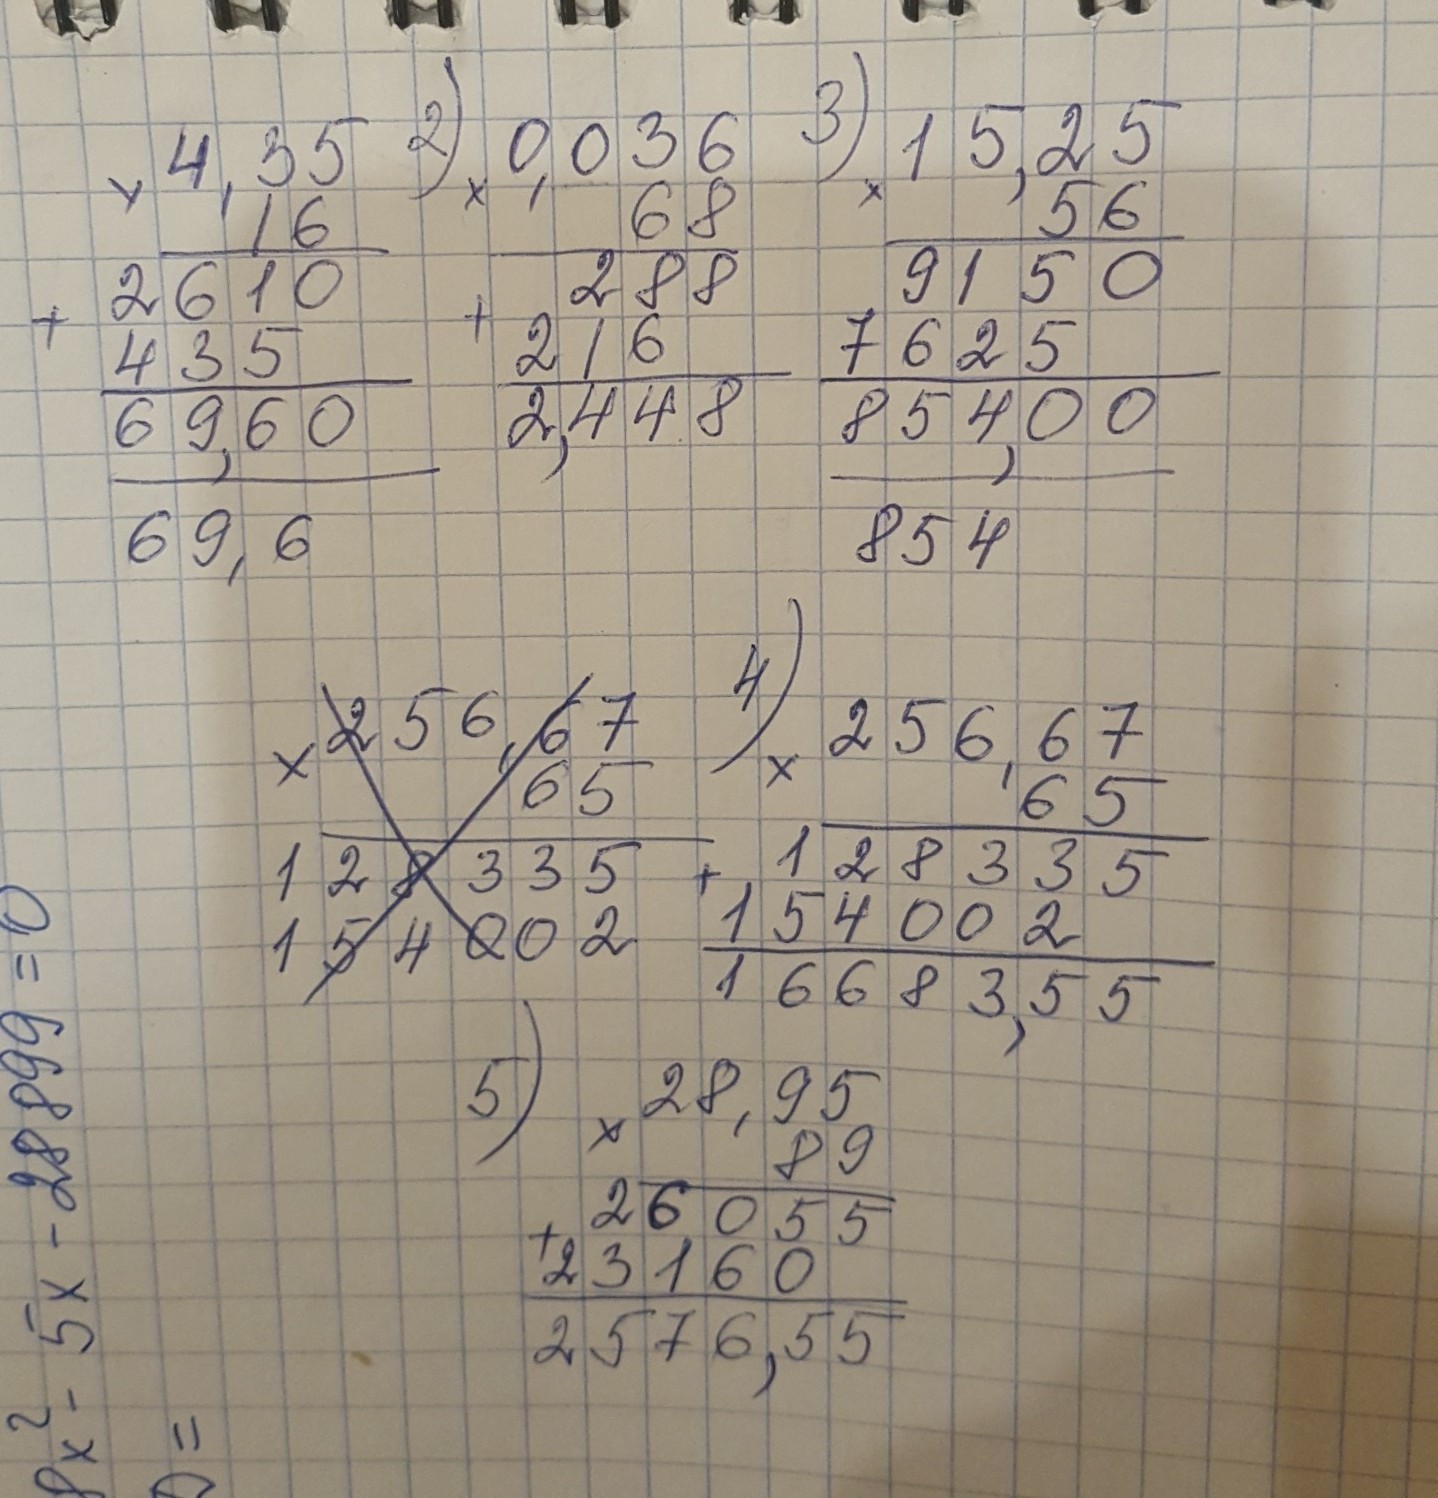 × 4,35
16
+ 2610
435
69,60
69,6
2) × 0,036
68
+ 288
216
2,448
3) × 15,25
56
9150
7625
854,00
854
× 256,67
65
128335
154002
4) × 256,67
65
+ 128335
154002
16683,55
5) × 28,95
89
+ 26055
23160
2576,55
8x² - 5x - 28899 = 0
D =